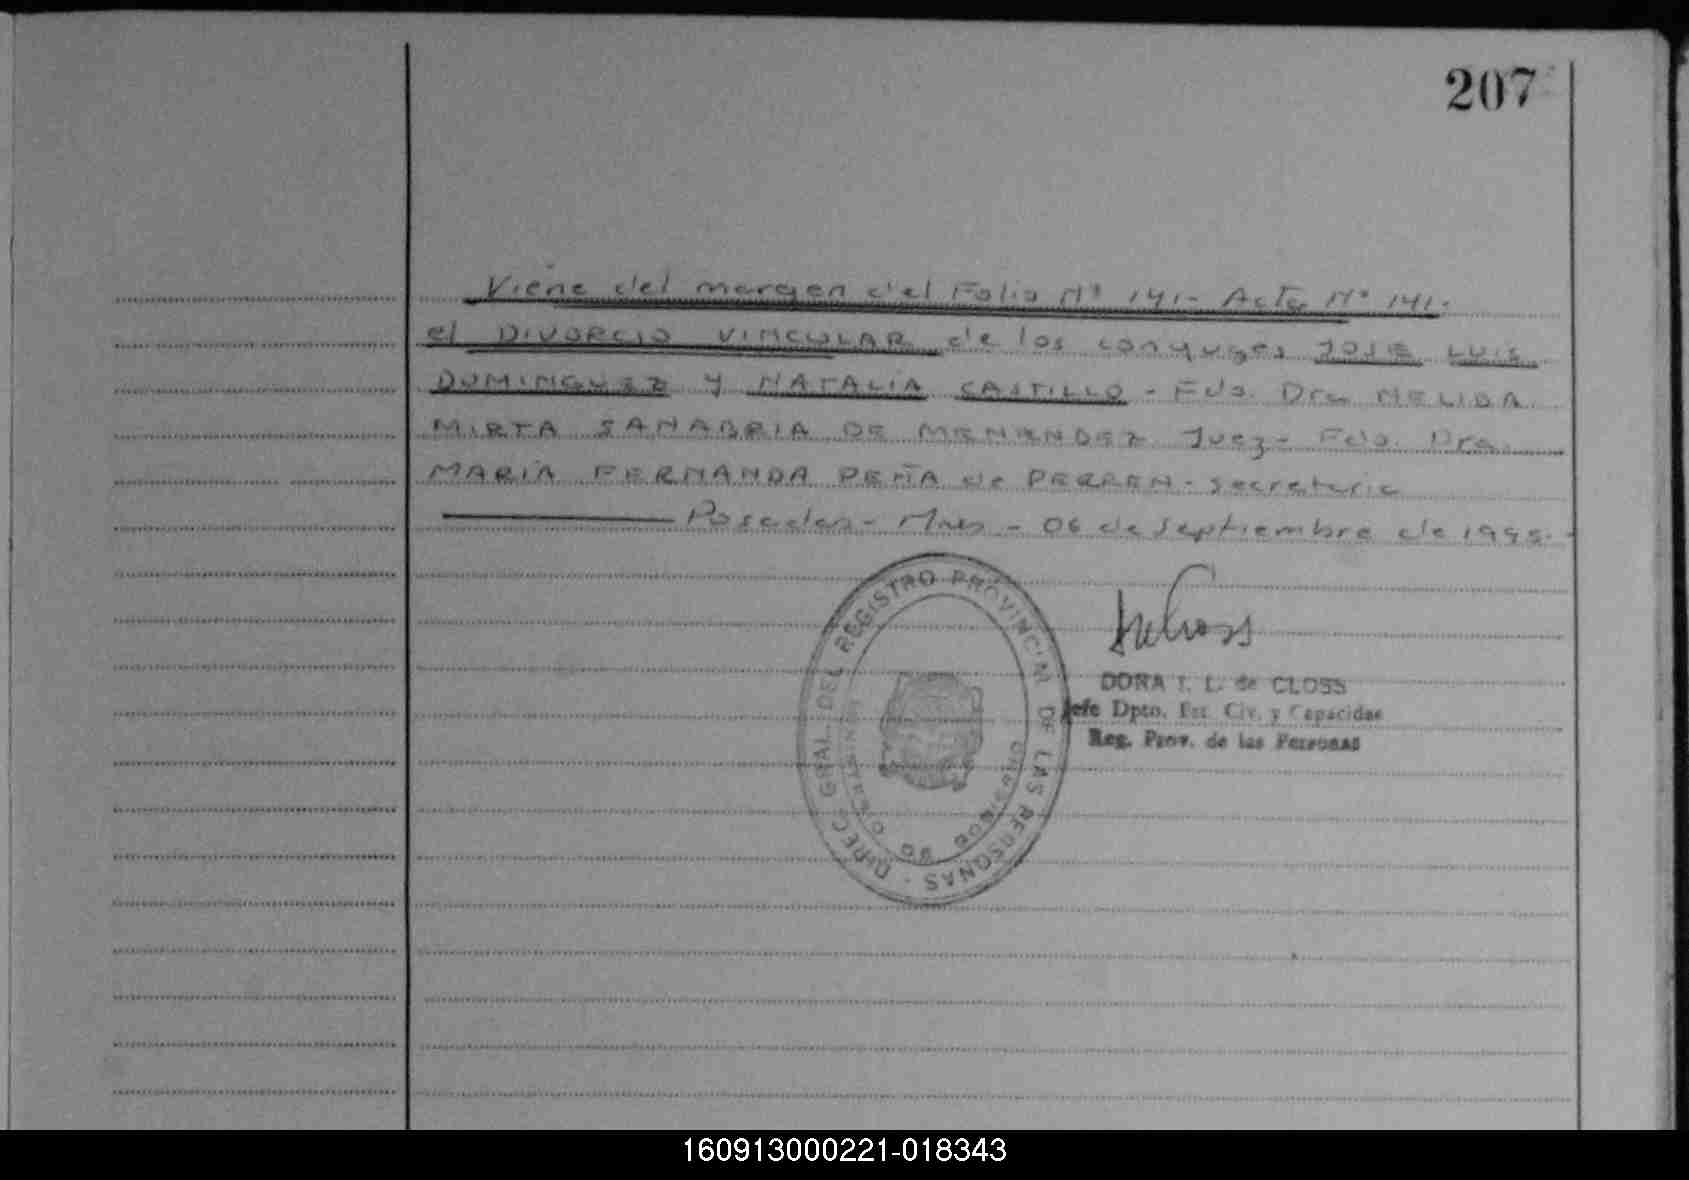 207
Viene del margen del Folio Nº 141- Acta Nº 141.
el DIVORCIO VINCULAR de los conyuges JOSE LUIS
DOMINGUEZ y NATALIA CASTILLO - Fdo. Dra NELIDA
MIRTA SANABRIA DE MENENDEZ Juez- Fdo. Dra.
MARIA FERNANDA PEÑA de PERREN - secretaria
Posadas - Mnes - 06 de septiembre de 1995.-
DIREC. GRAL. DEL REGISTRO PROVINCIAL DE LAS PERSONAS -
DORA I. L. de CLOSS
Jefe Dpto. Est. Civ. y Capacidad
Reg. Prov. de las Personas
160913000221-018343